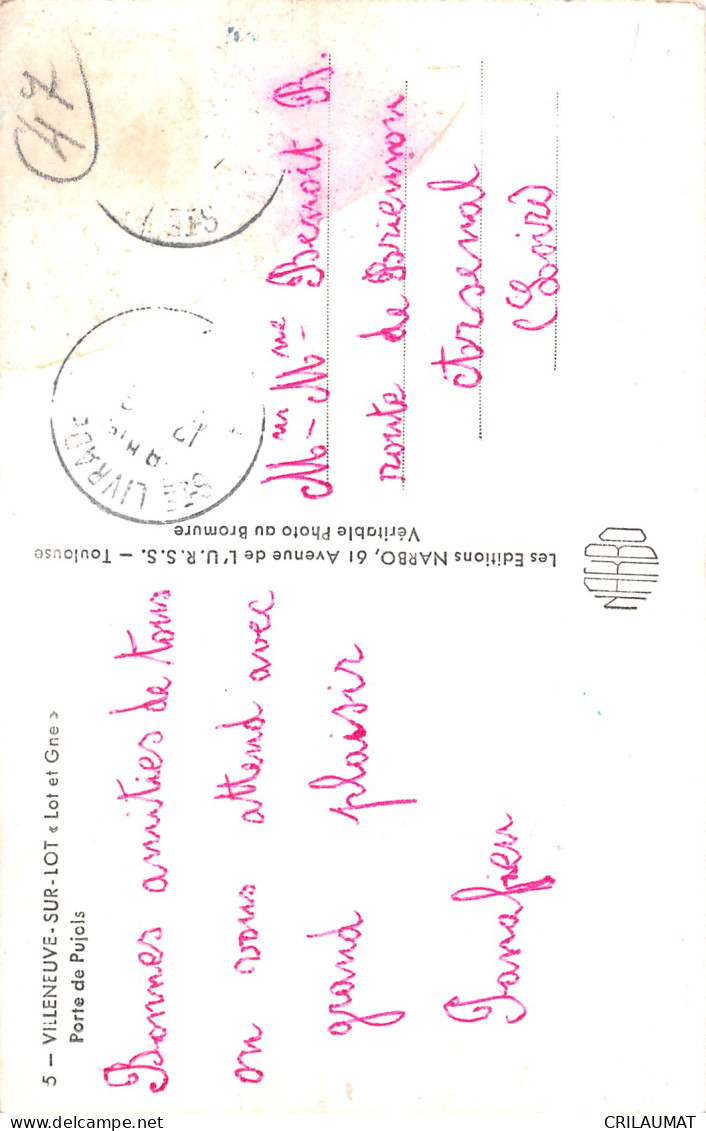 5 — VILLENEUVE-SUR-LOT « Lot et Gne »
Porte de Pujols
Bonnes amitiés de tous
on vous attend avec
grand plaisir
Panafieu
Les Editions NARBO, 61 Avenue de L'U.R.S.S. — Toulouse
Véritable Photo au Bromure
47
STE LIVRADE
17
STE
Mr Mme Benoit B.
route de Briennon
Arsenal
(Loire)
NARBO
CRILAUMAT